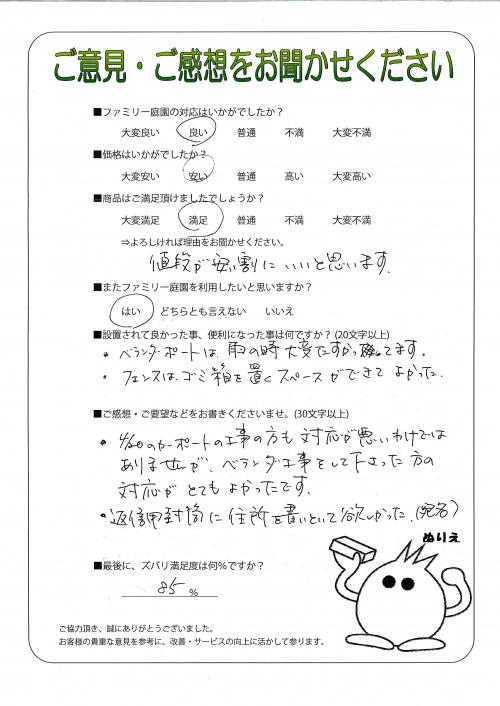 ご意見・ご感想をお聞かせください
■ファミリー庭園の対応はいかがでしたか？
大変良い 良い 普通 不満 大変不満
■価格はいかがでしたか？
大変安い 安い 普通 高い 大変高い
■商品はご満足頂けましたでしょうか？
大変満足 満足 普通 不満 大変不満
⇒よろしければ理由をお聞かせください。
値段が安い割にいいと思います。
■またファミリー庭園を利用したいと思いますか？
はい どちらとも言えない いいえ
■設置されて良かった事、便利になった事は何ですか？(20文字以上)
・ベランダポートは、雨の時大変たすかってます。
・フェンスは、ゴミ箱を置くスペースができてよかった。
■ご感想・ご要望などをお書きくださいませ。(30文字以上)
・4/20のカーポートの工事の方も対応が悪いわけでは
ありませんが、ベランダ工事をして下さった方の
対応がとてもよかったです。
・返信用封筒に住所を書いといて欲しかった。(宛名)
ぬりえ
■最後に、ズバリ満足度は何%ですか？
85 %
ご協力頂き、誠にありがとうございました。
お客様の貴重な意見を参考に、改善・サービスの向上に活かして参ります。